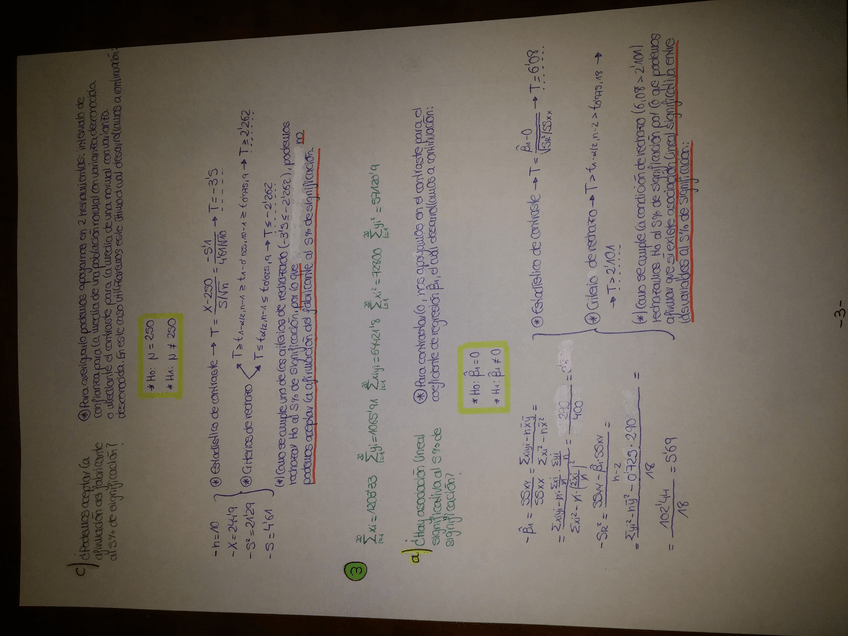 c) ¿Podemos aceptar la
afirmación del fabricante
al 5% de significación?
⊛ Para averiguarlo podemos apoyarnos en 2 herramientas: intervalo de
confianza para la media de una población normal con varianza desconocida
o mediante el contraste para la media de una normal con varianza
desconocida. En este caso utilizaremos este último el cual desarrollamos a continuación:
* H0: μ = 250
* H1: μ ≠ 250
- n = 10
- X = 244'9
- S² = 21'29
- S = 4'61
⊛ Estadístico de contraste → T = X-250 / S/√n = -5'1 / 4'61/√10 → T = -3'5
⊛ Criterios de rechazo
T ≥ t1-α/2, n-1 ≥ t1-0'025, 10-1 ≥ t0'975, 9 → T ≥ 2'262
T ≤ tα/2, n-1 ≤ t0'025, 9 → T ≤ -2'262
⊛ Como se cumple uno de los criterios de rechazo (-3'5 ≤ -2'262), podemos
rechazar H0 al 5% de significación, por lo que
podemos aceptar la afirmación del fabricante al 5% de significación
3
∑xi = 1208'33 ∑yi = 1065'91 ∑xiyi = 64421'8 ∑xi² = 73400 ∑yi² = 57120'9
a) ¿Hay asociación lineal
significativa al 5% de
significación?
⊛ Para contrastarlo, nos apoyamos en el contraste para el
coeficiente de regresión β1, el cual desarrollamos a continuación:
* H0: β̂1 = 0
* H1: β̂1 ≠ 0
- β̂1 = SSxy / SSxx = ∑xiyi - nx̄ȳ / ∑xi² - nx̄² =
= 290 / 400 =
- SR² = SSyy - β̂1 SSxy / n-2 =
= ∑yi² - nȳ² - 0'725 · 290 / 18 =
= 102'41 / 18 = 5'69
⊛ Estadístico de contraste → T = β̂1-0 / √SR²/SSxx → T = 6'08
⊛ Criterio de rechazo → T > t1-α/2, n-2 > t0'975, 18 →
→ T > 2'101
⊛ Como se cumple la condición de rechazo (6,08 > 2'101)
rechazamos H0 al 5% de significación por lo que podemos
afirmar que sí existe asociación lineal significativa entre
las variables al 5% de significación.
-3-